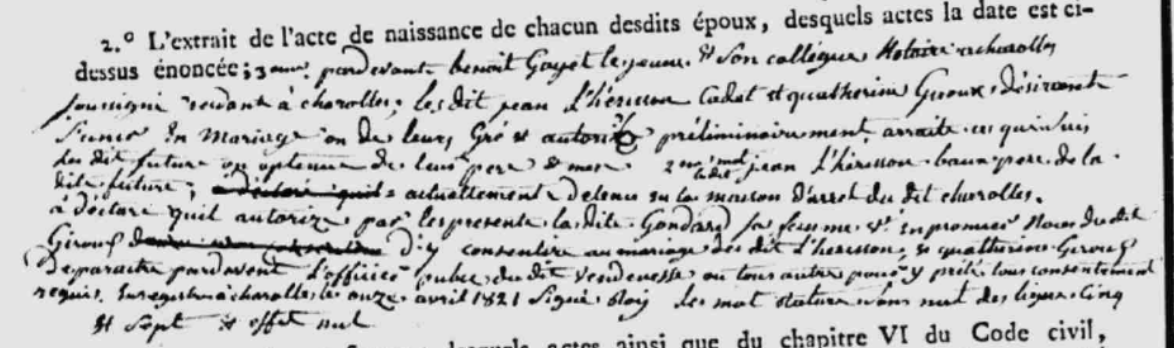 2.° L'extrait de l'acte de naissance de chacun desdits époux, desquels actes la date est ci-
dessus énoncée; 3eme. pardevant benoit Gayet le jeune & Son collègue Notaire a charolles
soussigné residant à charolles; les dit jean L'herisson Cadet et quatherine Giroux désirant
S'unir En Mariage on de leurs Gré & préliminairement arraité ce qui suis
les dit future on optenue de leus pere & mere. jean L'herisson baux pere de la
dite future; actuellement detenu su la maison d'arrêt du dit charolles.
à déclaré qu'il autorize par les presente la dite Gondard sa femme & En premier Noces du dit
Giroux d'y consentire au mariage des dit L'herisson, & quatherine Giroux
De paraitre pardevent L'officié public du dit vendenesse ou tous autre pour y prété tous consentement
requis. Enregistre à charolles le onze avril 1821 Signé les mot nul des lignes Cinq
et Sept & effet nul
actes ainsi que du chapitre VI du Code civil,